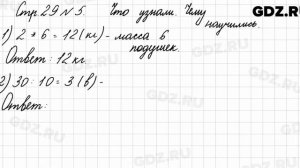 GDZ.RU
Стр. 29 № 5. Что узнали. Чему
научились
1) 2 * 6 = 12 (кг) - масса 6
подушек.
Ответ: 12 кг.
2) 30 : 10 = 3 (в) -
Ответ: